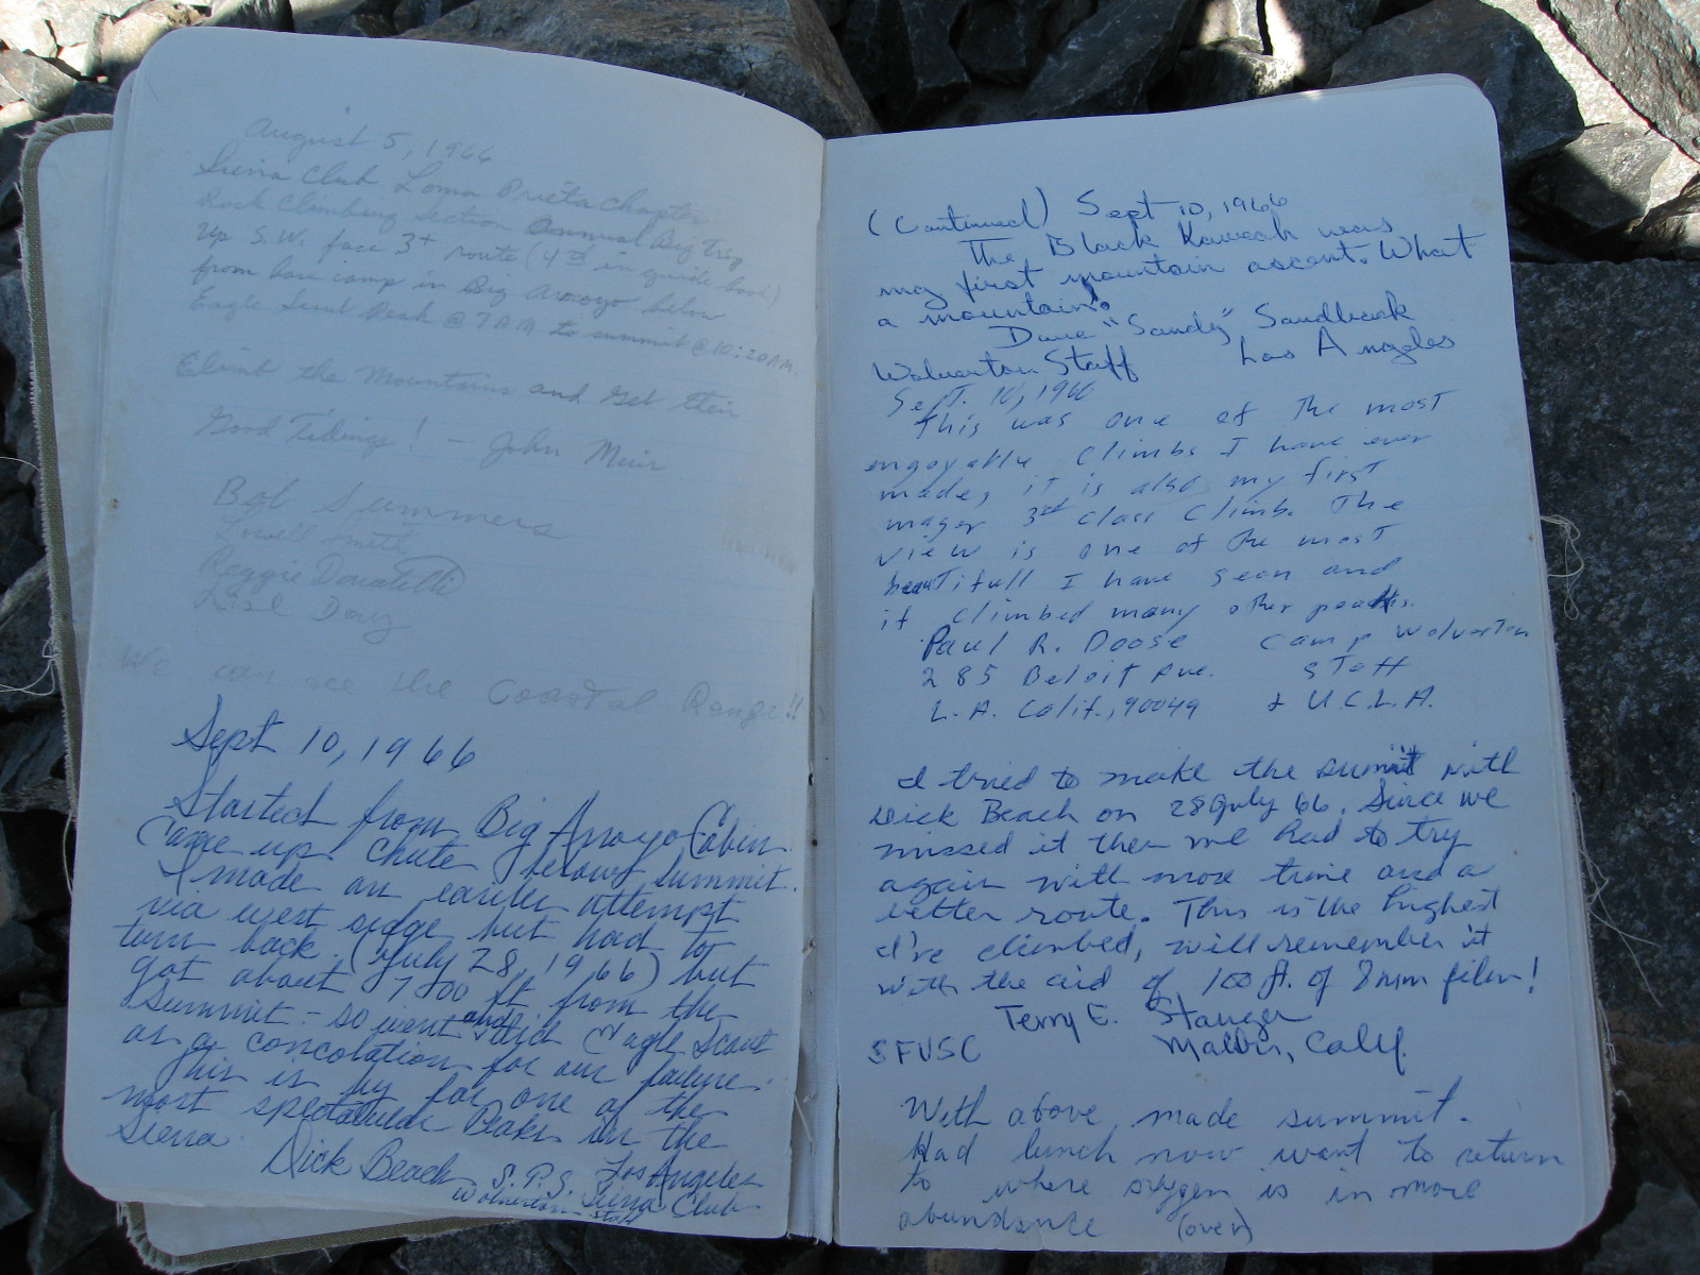 August 5, 1966
Sierra Club Loma Prieta Chapter
Rock Climbing Section Annual Big Trip
Up S.W. face 3+ route (4th in guide book)
from base camp in Big Arroyo below
Eagle Scout Peak @ 7 AM to summit @ 10:20 AM.
Climb the Mountains and Get their
Good Tidings! - John Muir
Bob Summers
Lowell Smith
Reggie Donatelli
We can see the Coastal Range!!
Sept 10, 1966
Started from Big Arroyo Cabin.
Came up chute below summit.
I made an earlier attempt
via west ridge but had to
turn back. (July 28, 1966) but
got about ft from the
summit - so went and did Eagle Scout
as a concolation for our failure.
This is by far one of the
most spectacular Peaks in the
Sierra.
Dick Beach S.P.S. Los Angeles
Wolverton Staff Sierra Club
(Continued) Sept 10, 1966
The Black Kaweah was
my first mountain ascent. What
a mountain!
Dave "Sandy" Sandback
Wolverton Staff Los Angeles
Sept. 10, 1966
This was one of the most
enjoyable climbs I have ever
made, it is also my first
major 3rd class climb. The
view is one of the most
beautifull I have seen and
if climbed many other peaks.
Paul R. Doose Camp Wolverton
285 Beloit Ave. Staff
L.A. Calif., 90049 & U.C.L.A.
I tried to make the summit with
Dick Beach on 28 July 66. Since we
missed it then we had to try
again with more time and a
better route. This is the highest
I've climbed, will remember it
with the aid of 100 ft. of 8mm film!
Terry E. Stanger
SFVSC Malibu, Calif.
With above, made summit.
Had lunch now want to return
to where oxygen is in more
abundance (over)